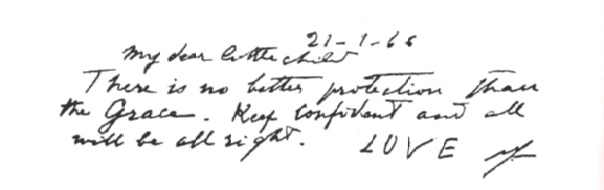 21-1-65
My dear little child
There is no better protection than
the Grace. Keep confident and all
will be all right. LOVE